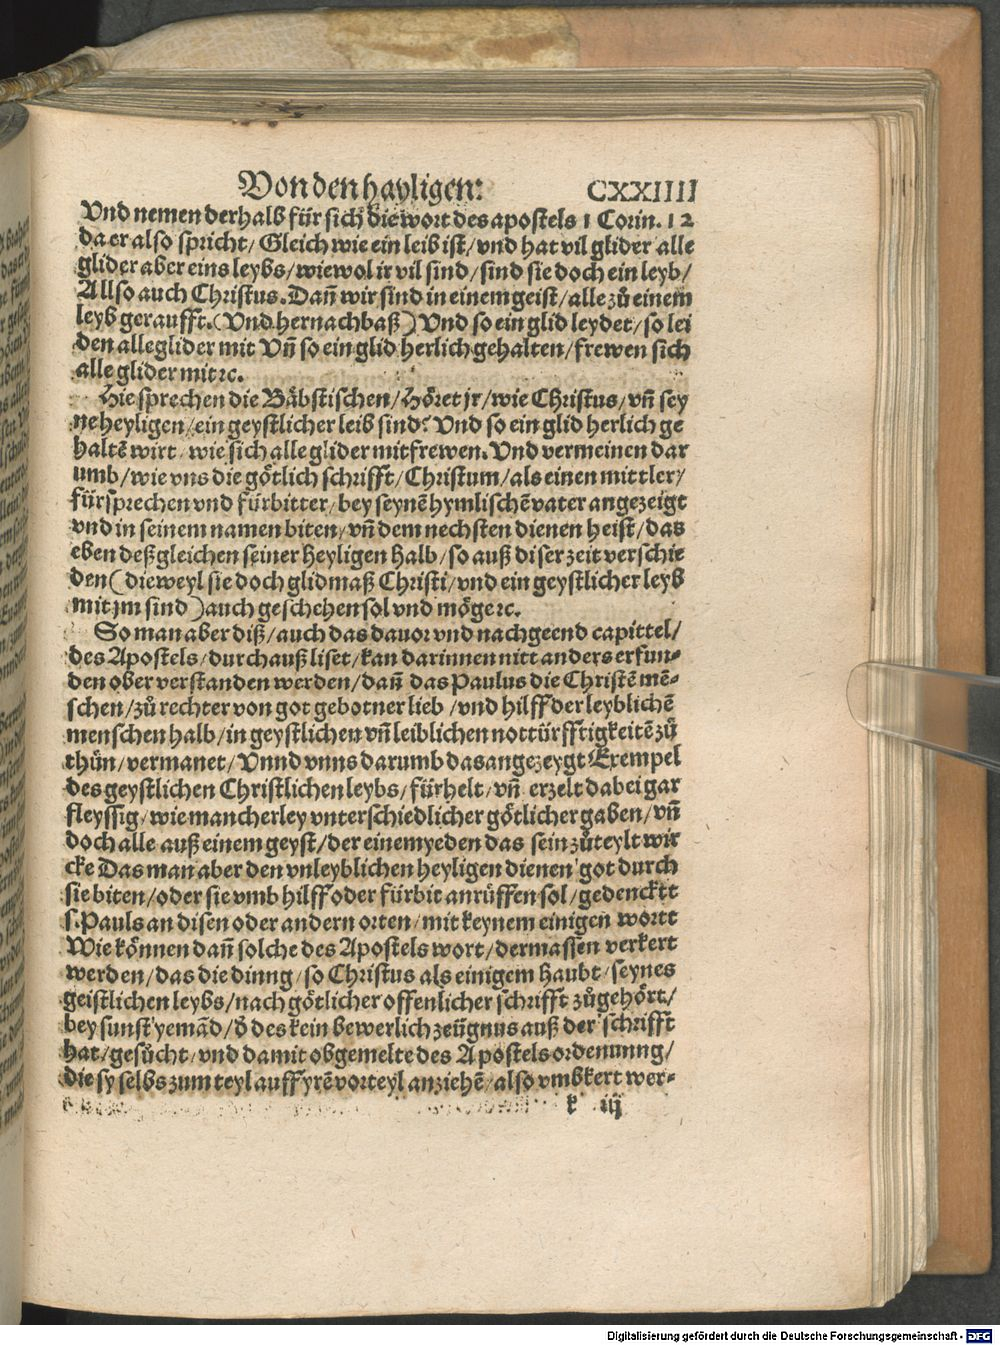 Von den hayligen: CXXIIII
Vnd nemen derhalb für sich die wort des apostels 1 Corin. 12
da er also spricht/ Gleich wie ein leib ist/ vnd hat vil glider alle
glider aber eins leybs/ wiewol ir vil sind/ sind sie doch ein leyb/
Allso auch Christus. Dañ wir sind in einem geist/ alle zů einem
leyb geraufft. (Vnd hernach baß) Vnd so ein glid leydet/ so lei
den alle glider mit Vñ so ein glid herlich gehalten/ frewen sich
alle glider mit ꝛc.
Hie sprechen die Bäbstischen/ Höret jr/ wie Christus/ vñ sey
ne heyligen/ ein geystlicher leib sind? Vnd so ein glid herlich ge
haltē wirt/ wie sich alle glider mitfrewen. Vnd vermeinen dar
umb/ wie vns die götlich schrifft/ Christum/ als einen mittler/
fürsprechen vnd fürbitter/ bey seynē hymlischē vater angezeigt
vnd in seinem namen biten/ vñ dem nechsten dienen heist/ das
eben deßgleichen seiner heyligen halb/ so auß diser zeit verschie
den (dieweyl sie doch glidmaß Christi/ vnd ein geystlicher leyb
mit jm sind) auch geschehen sol vnd möge ꝛc.
So man aber diß/ auch das dauor vnd nachgeend capittel/
des Apostels/ durchauß liset/ kan darinnen nitt anders erfun-
den ober verstanden werden/ dañ das Paulus die Christē mē-
schen/ zů rechter von got gebotner lieb/ vnd hilff der leyblichē
menschen halb/ in geystlichen vñ leiblichen nottürfftigkeitē zů
thůn/ vermanet/ Vnnd vnns darumb das angezeygt Exempel
des geystlichen Christlichen leybs/ fürhelt/ vñ erzelt dabei gar
fleyssig/ wie mancherley vnterschiedlicher götlicher gaben/ vñ
doch alle auß einem geyst/ der einem yeden das sein zůteylt wir
cke Das man aber den vnleyblichen heyligen dienen got durch
sie biten/ oder sie vmb hilff oder fürbit anrůffen sol/ gedencktt
s. Pauls an disen oder andern orten/ mit keynem einigen wortt
Wie können dañ solche des Apostels wort/ dermassen verkert
werden/ das die dinng/ so Christus als einigem haubt/ seynes
geistlichen leybs/ nach götlicher offenlicher schrifft zůgehört/
bey sunst yemād/ ď des kein bewerlich zeügnus auß der schrifft
hat/ gesůcht/ vnd damit obgemelte des Apostels ordenunng/
die sy selbs zum teyl auff yrē vorteyl anziehē/ also vmbkert wer-
k iij
Digitalisierung gefördert durch die Deutsche Forschungsgemeinschaft - DFG